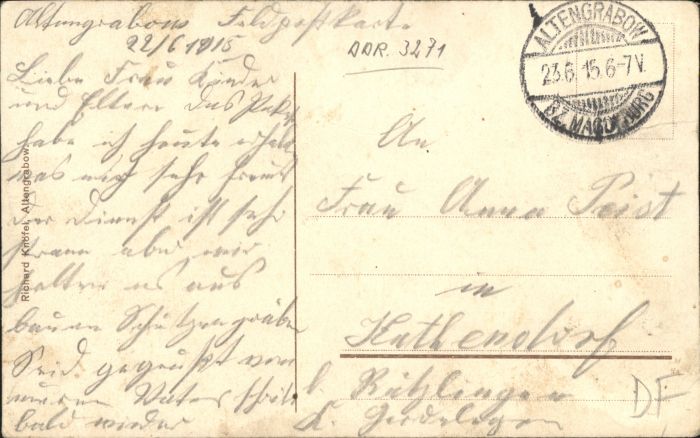 Altengrabow Feldpostkarte
22/6 1915
ADR. 3271
Liebe Frau Kinder
und Eltern das Paket
habe ich heute erhalten
was mich sehr freut
der Dienst ist sehr
stramm aber wir
halten es aus
bauen Schützengräben
Seid gegrüßt von
euren Vater schreibt
bald wieder
Richard Knöfel, Altengrabow
ALTENGRABOW
23.6.15.6-7V.
BZ. MAGDEBURG
An
Frau Anna Peist
in
Kathendorf
b. Rätzlingen
K. Gardelegen
DF